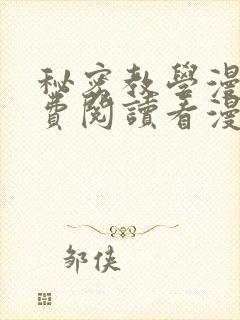 秘密教學漫
費閱讀看漫
邹侠